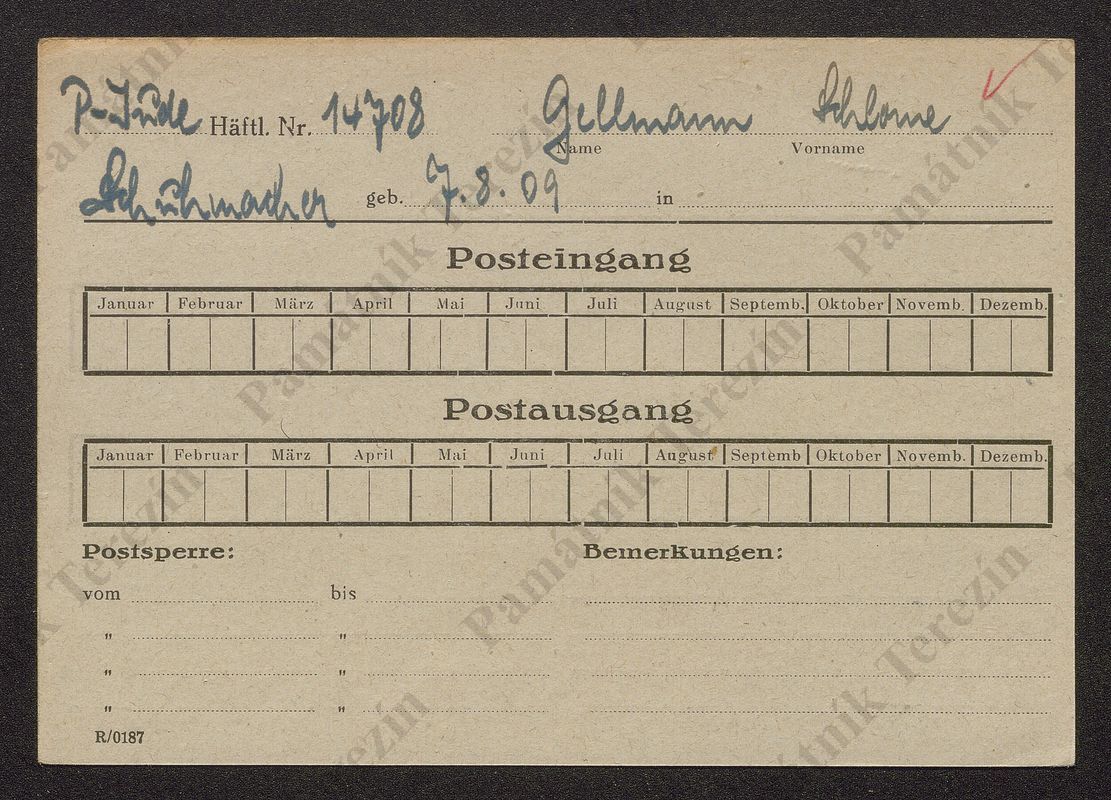 P-Jude Häftl. Nr. 14708 Gellmann Schlome
Name Vorname
Schuhmacher geb. 7.8.09 in
Posteingang
Januar Februar März April Mai Juni Juli August Septemb. Oktober Novemb. Dezemb.
Postausgang
Januar Februar März April Mai Juni Juli August Septemb Oktober Novemb. Dezemb.
Postsperre: Bemerkungen:
vom bis
" "
" "
" "
R/0187
Památník Terezín
Památník Terezín
Památník Terezín
Památník Terezín